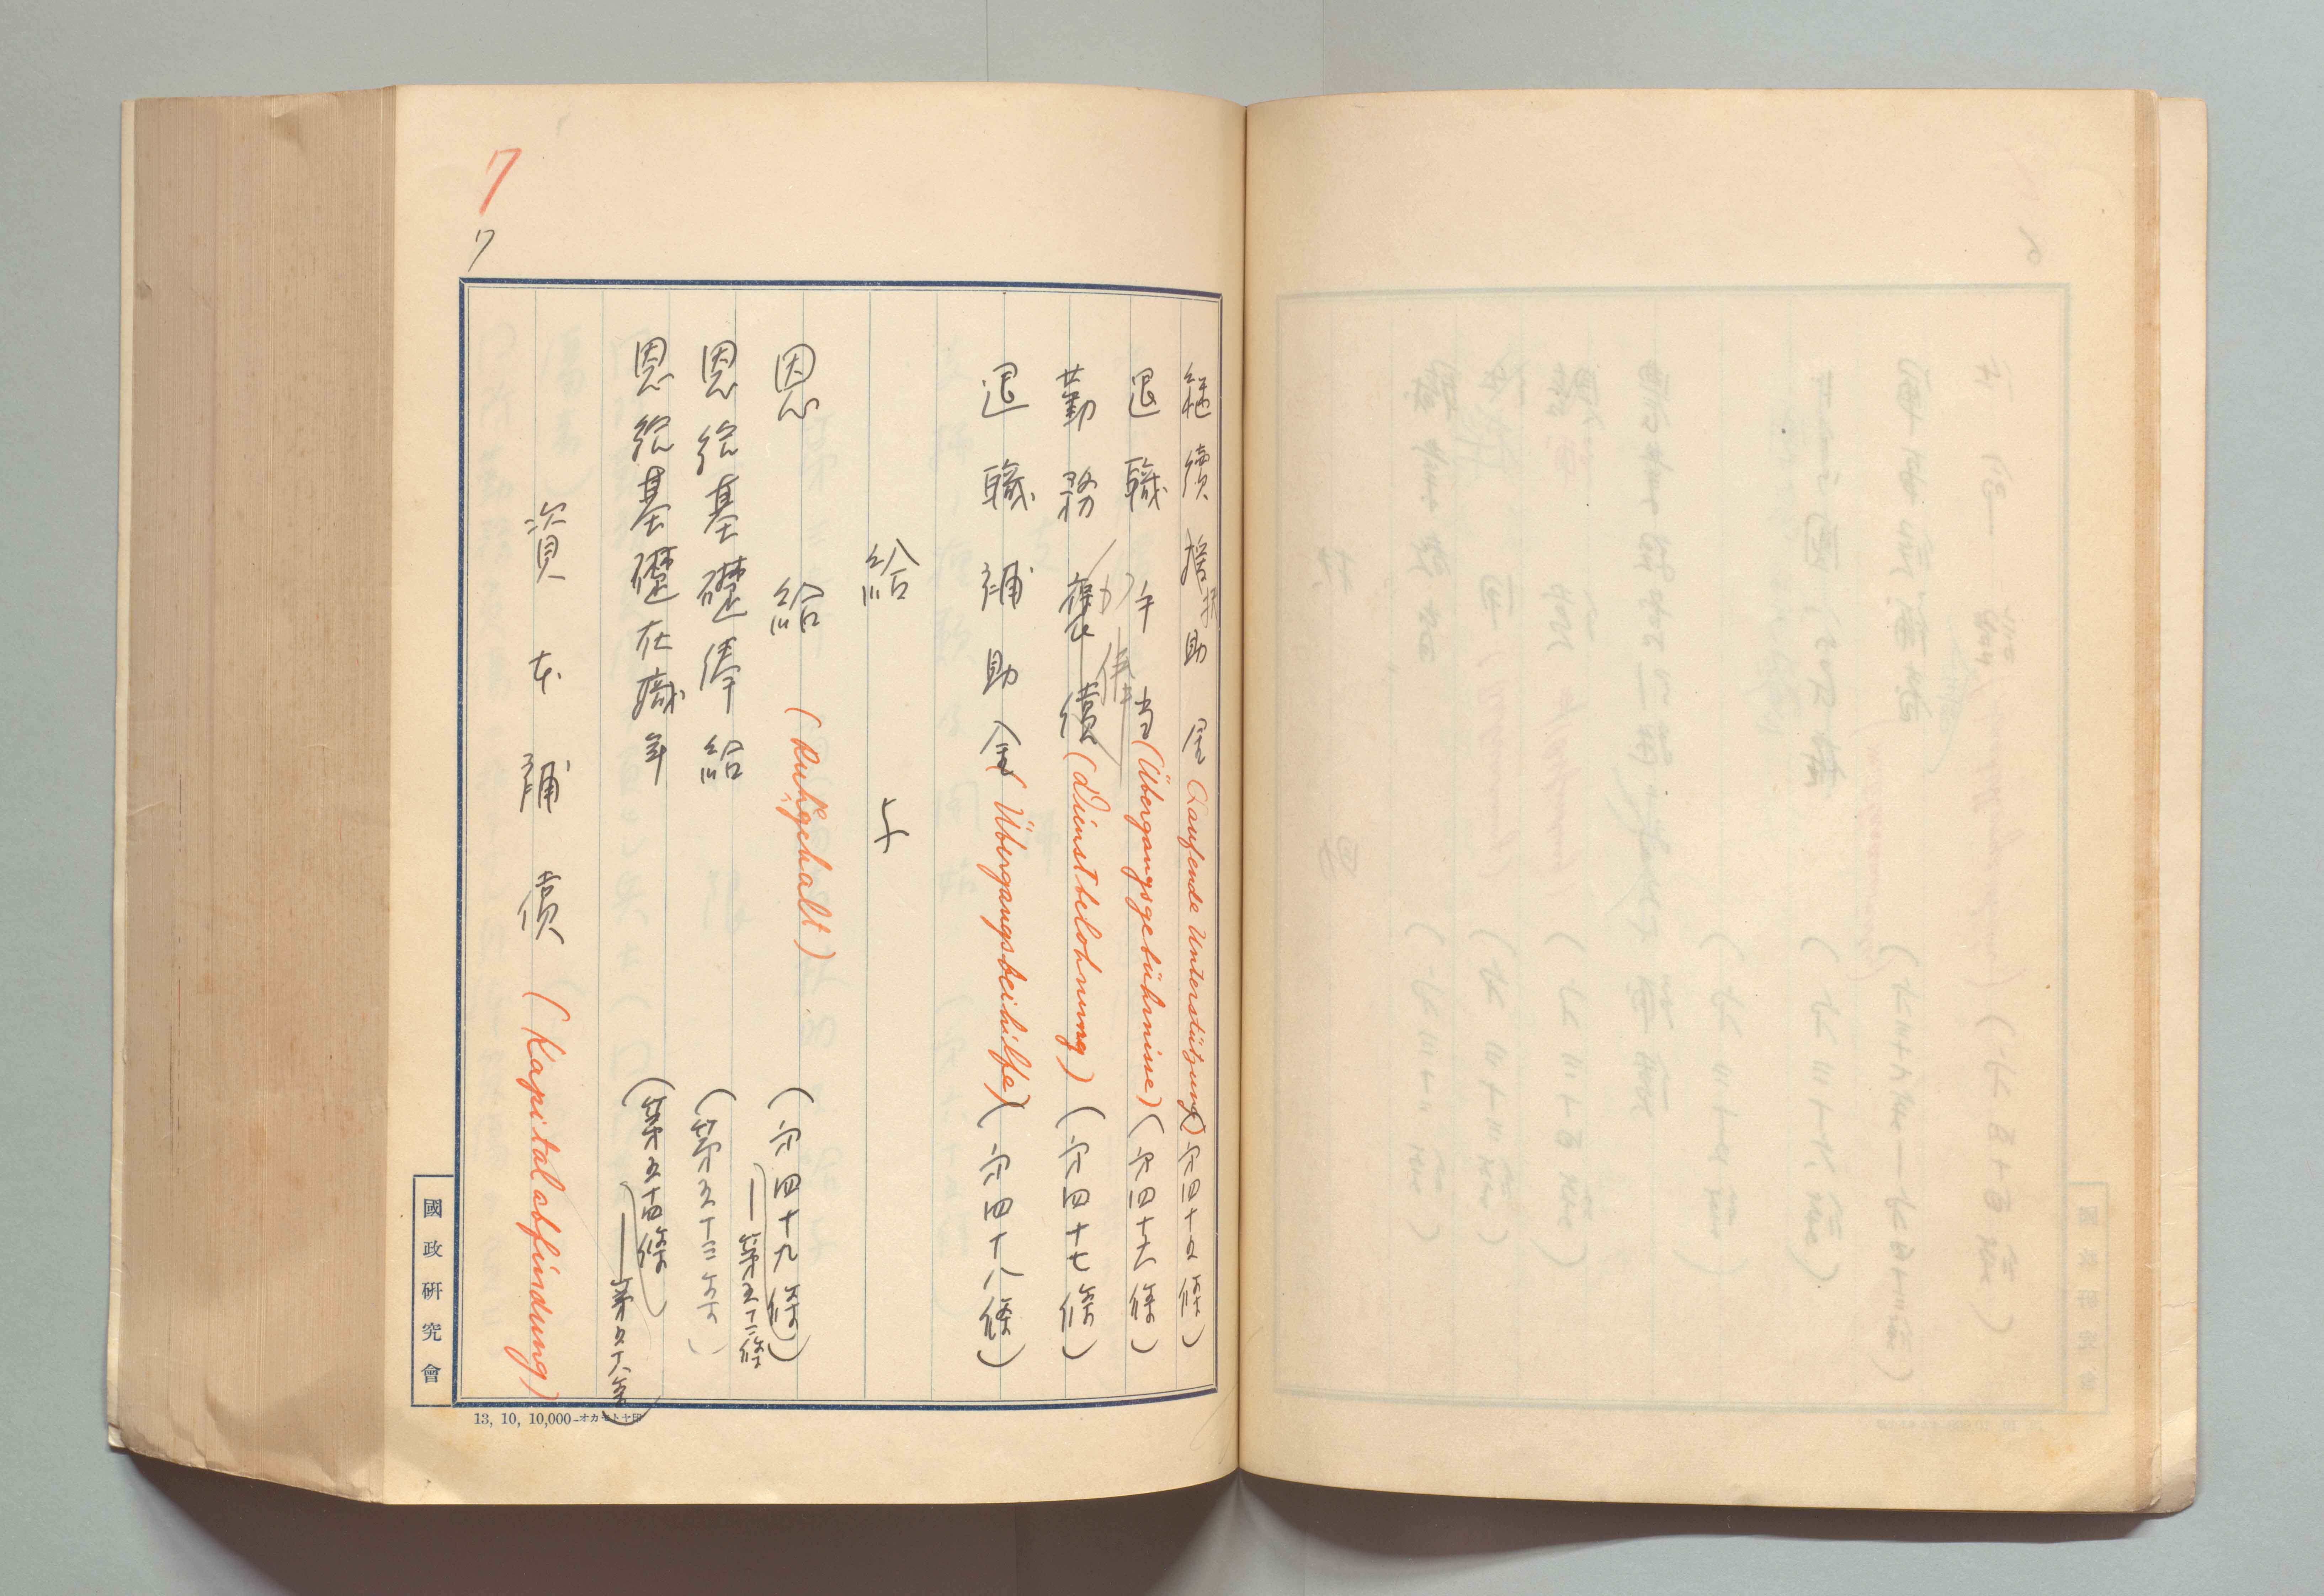 7
7
継續援助金(Laufende Unterstützung)(第四十五條)
退職手当(Übergangsgebührnisse)(第四十六條)
勤務(Dienstbelohnung)(第四十七條)
退職補助金(Übergangsbeihilfe)(第四十八條)
給与
恩給(Ruhgehalt)(第四十九條)
―第五十二條
恩給基礎俸給(第五十三條)
恩給基礎在職年(第五十四條
―第五十六條)
資本補償(Kapitalabfindung)
國政研究會
13, 10, 10,000-オカモトヤ印